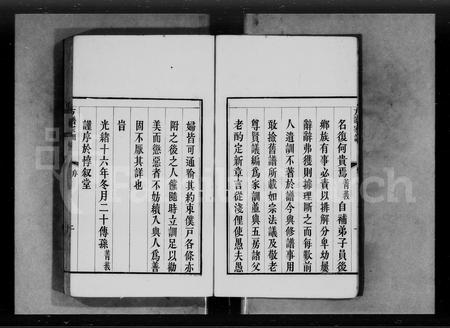 名復何貴焉菁莪自補弟子員後
鄉族有事必責以排解分卑幼屢
辭辭弗獲則據理斷之而每歎前
人遺訓不著於譜今與修譜事用
敢撿舊譜所載如宗法議及敬老
尊賢議編為家訓並與五房諸父
老酌定新章言從淺俚使愚夫愚
婦皆可通喻其約束僕戸各條亦
附之後之人僅隨時立訓足以勸
美而懲惡者不妨續入與人為善
固不厭其詳也
旹
光緒十六年冬月二十傳孫菁莪
謹序於惇叙堂